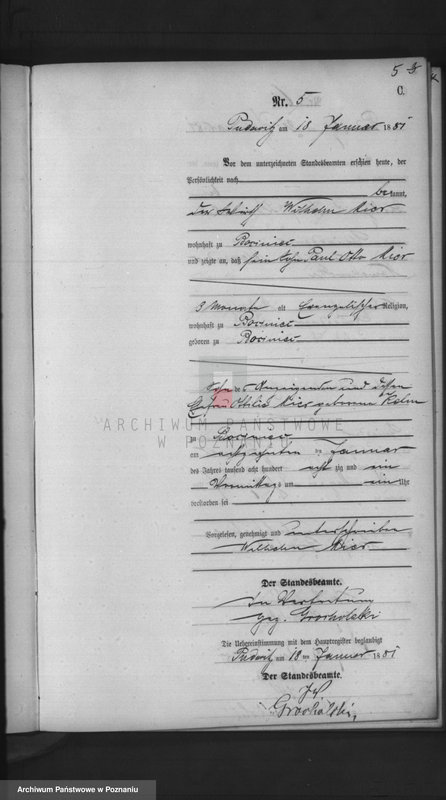 5
C.
Nr. 5
Pudewitz am 18 Januar 1881
Vor dem unterzeichneten Standesbeamten erschien heute, der
Persönlichkeit nach
bekannt,
der Wilhelm Mior
wohnhaft zu
und zeigte an, daß sein Sohn Paul Otto Mior
3 Monate alt Evangelischer Religion,
wohnhaft zu
geboren zu
Sohn des Anzeigenden und dessen
Ehefrau Ottilie Mior geborene
ARCHIWUM PAŃSTWOWE
W POZNANIU
zu
am achtzehnten ten Januar
des Jahres tausend acht hundert achtzig und ein
Vormittags um ein Uhr
verstorben sei
Vorgelesen, genehmigt und unterschrieben
Wilhelm Mior
Der Standesbeamte.
In Vertretung
gez. Grocholski
Die Uebereinstimmung mit dem Hauptregister beglaubigt
Pudewitz am 18 ten Januar 1881
Der Standesbeamte.
Grocholski
Archiwum Państwowe w Poznaniu